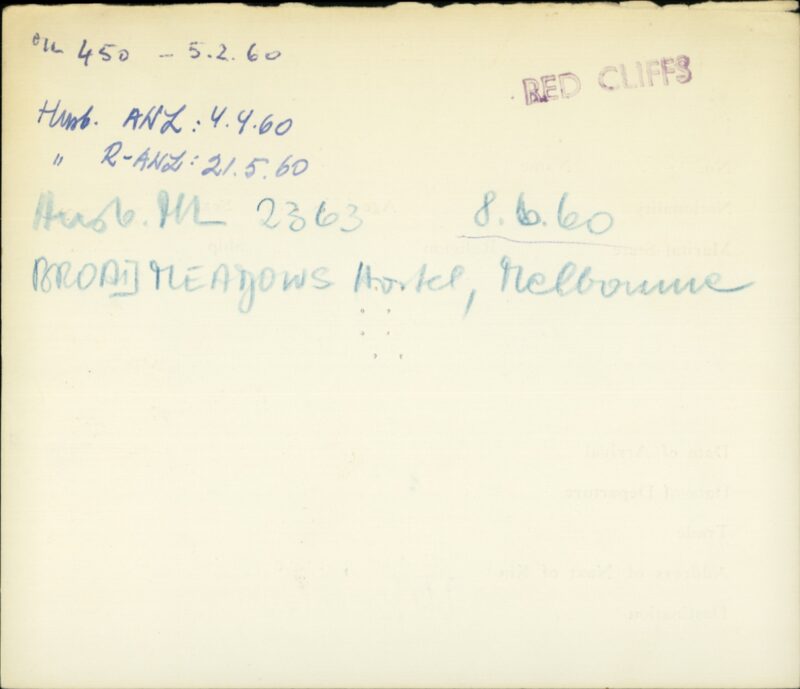 ML 450 - 5.2.60
RED CLIFFS
Husb. ANL: 4.4.60
" R-ANL: 21.5.60
Husb. ML 2363 8.6.60
BROADMEADOWS Hostel, Melbourne
Nationality
Age
Marital State
Ship
Date of Arrival
Date of Departure
Trade
Address of Next of Kin
Destination